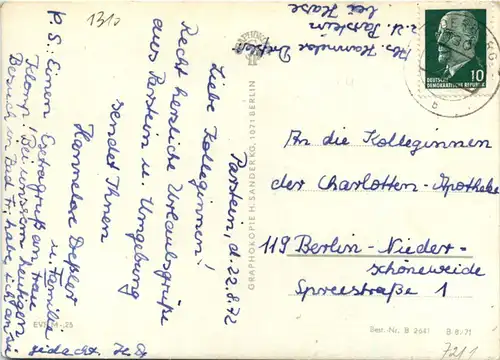 1310
Abs. Hannelore Deßler
z. Zt. Parstein
bei Hase
Parstein, d. 22.8.72
Liebe Kolleginnen!
Recht herzliche Urlaubsgrüße
aus Parstein u. Umgebung
sendet Ihnen
Hannelore Deßler
u. Familie
P.S: Einen Extragruß an Frau
! Bei unserem heutigen
Besuch in Bad Fr. habe ich an sie
gedacht. H. D.
GRAPHOKOPIE H. SANDER KG, 1071 BERLIN
DEUTSCHE
DEMOKRATISCHE REPUBLIK
10
b
An die Kolleginnen
der Charlotten-Apotheke
119 Berlin-Nieder-
schöneweide
Spreestraße 1
Best.-Nr. B 2641
B 8/71
7211